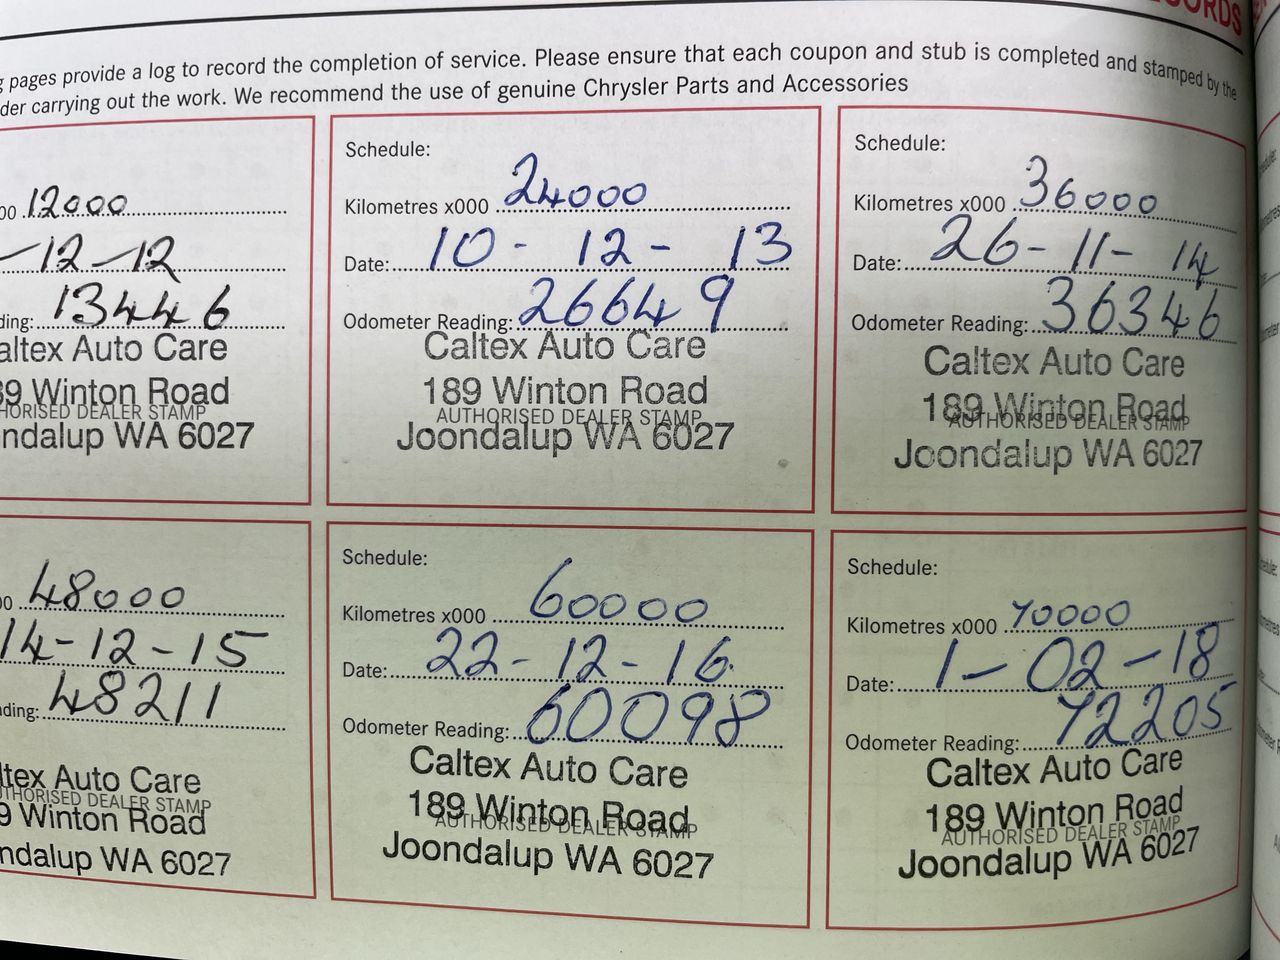 CORDS
g pages provide a log to record the completion of service. Please ensure that each coupon and stub is completed and stamped by the
der carrying out the work. We recommend the use of genuine Chrysler Parts and Accessories
00 12000
-12-12
ding: 13446
altex Auto Care
89 Winton Road
HORISED DEALER STAMP
ndalup WA 6027
Schedule:
Kilometres x000 24000
Date: 10 - 12 - 13
Odometer Reading: 26649
Caltex Auto Care
189 Winton Road
AUTHORISED DEALER STAMP
Joondalup WA 6027
Schedule:
Kilometres x000 36000
Date: 26-11-14
Odometer Reading: 36346
Caltex Auto Care
189 Winton Road
AUTHORISED DEALER STAMP
Joondalup WA 6027
00 48000
14-12-15
ding: 48211
ltex Auto Care
THORISED DEALER STAMP
9 Winton Road
ndalup WA 6027
Schedule:
Kilometres x000 60000
Date: 22-12-16
Odometer Reading: 60098
Caltex Auto Care
189 Winton Road
AUTHORISED DEALER STAMP
Joondalup WA 6027
Schedule:
Kilometres x000 70000
Date: 1-02-18
Odometer Reading: 72205
Caltex Auto Care
189 Winton Road
AUTHORISED DEALER STAMP
Joondalup WA 6027